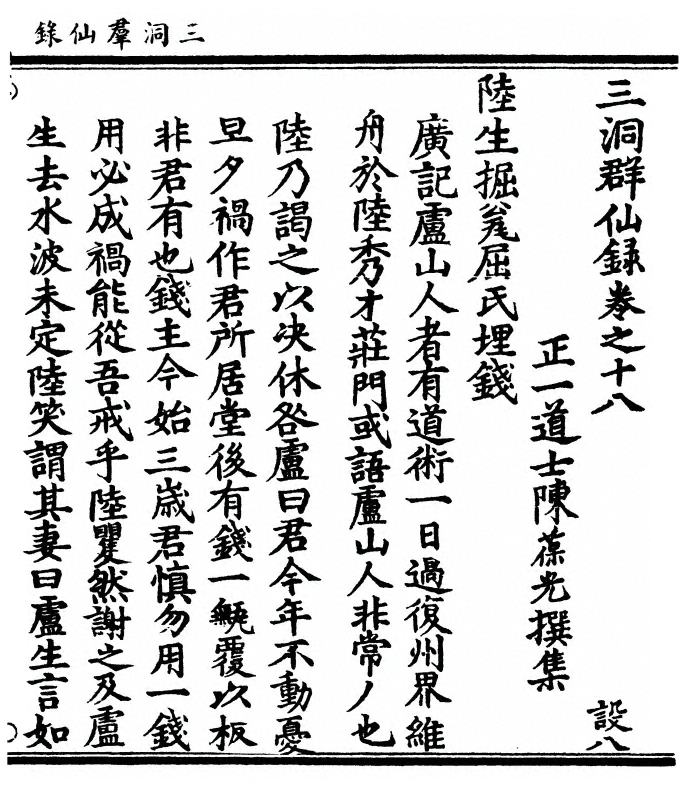 三洞羣仙錄
三洞群仙錄卷之十八
設八
正一道士陳葆光撰集
陸生掘瓮屈氏埋錢
廣記盧山人者有道術一日過復州界維
舟於陸秀才莊門或語盧山人非常人也
陸乃謁之以决休咎盧曰君今年不動憂
旦夕禍作君所居堂後有錢一瓶覆以板
非君有也錢主今始三歲君慎勿用一錢
用必成禍能從吾戒乎陸矍然謝之及盧
生去水波未定陸笑謂其妻曰盧生言如